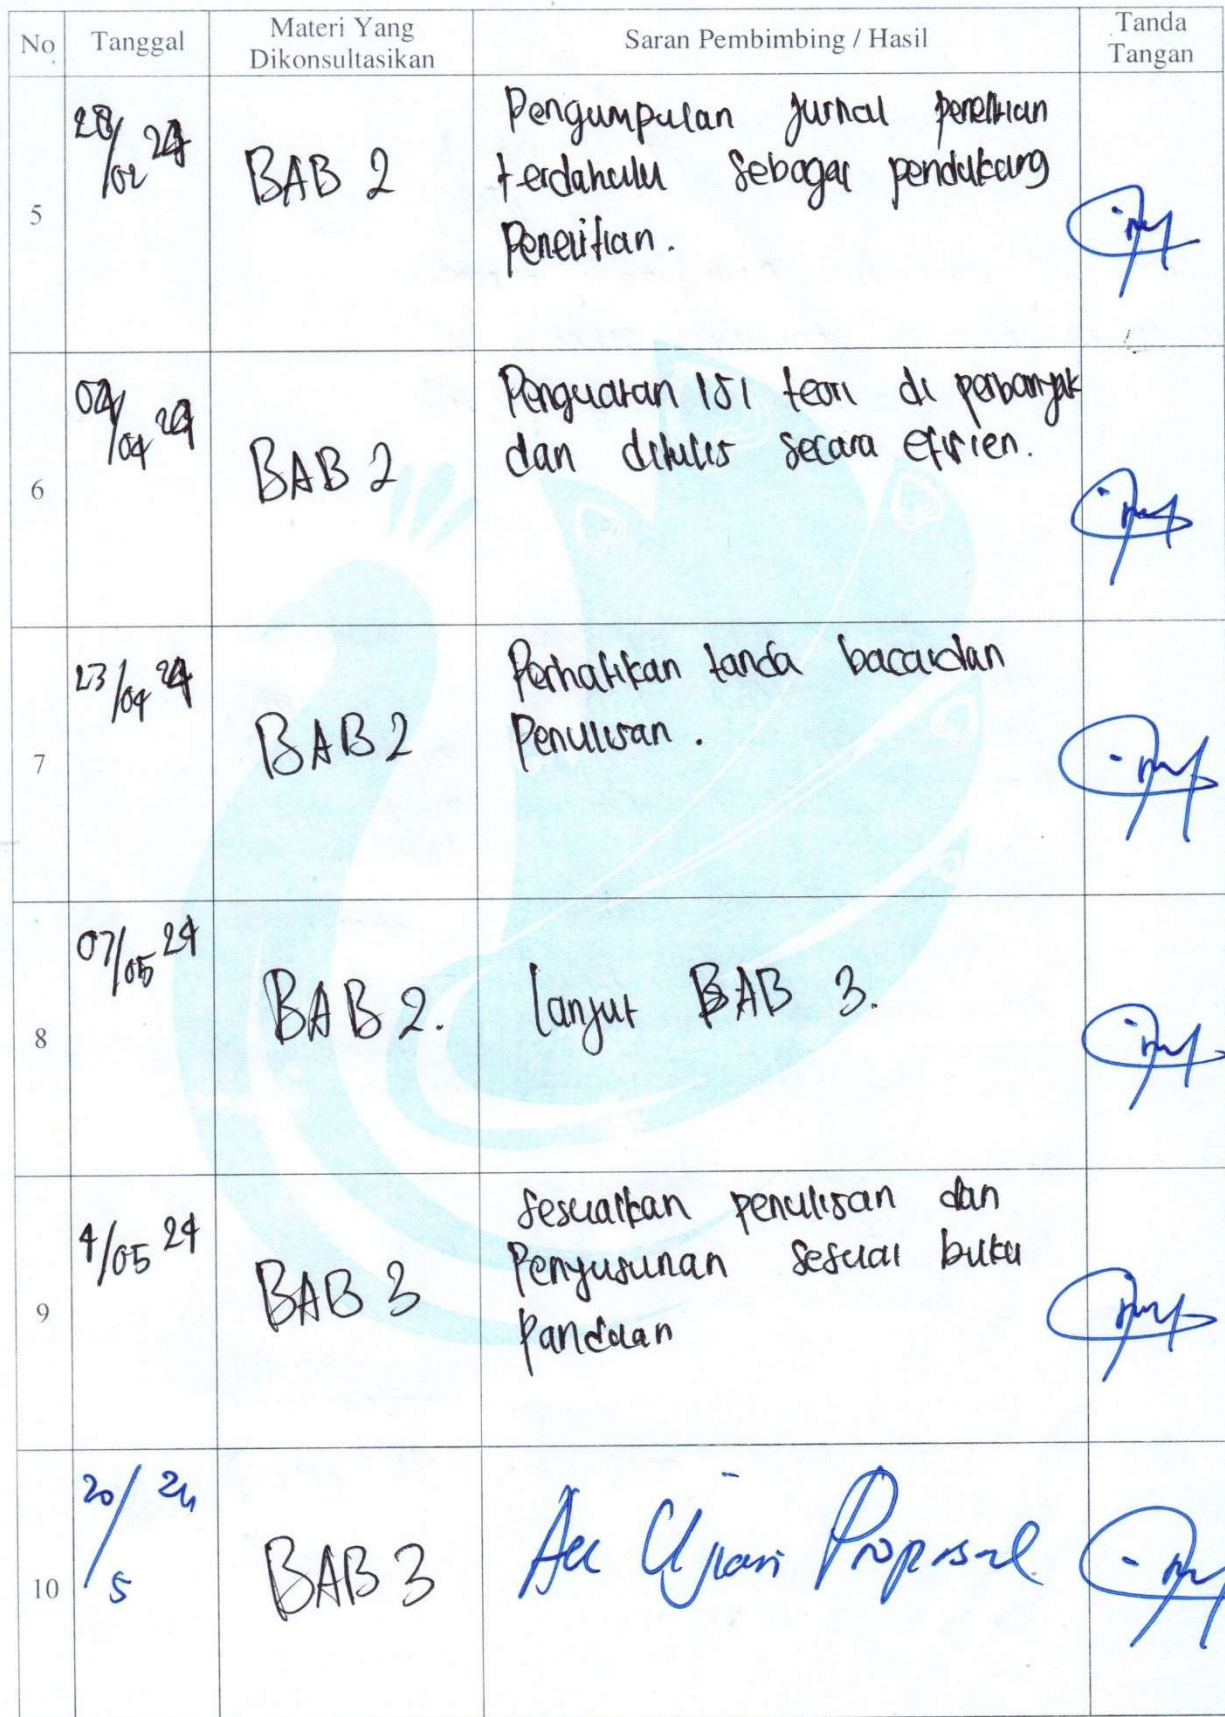 No Tanggal Materi Yang Dikonsultasikan Saran Pembimbing / Hasil Tanda Tangan
5 28/02 24 BAB 2 Pengumpulan jurnal penelitian
terdahulu sebagai pendukung
Penelitian.
6 02/04 24 BAB 2 Penguatan isi teori di perbanyak
dan ditulis secara efisien.
7 23/04 24 BAB 2 Perhatikan tanda baca dan
Penulisan.
8 07/05 24 BAB 2. lanjut BAB 3.
9 /05 24 BAB 3 Sesuaikan penulisan dan
Penyusunan sesuai buku
Panduan
10 20/5 24 BAB 3 Acc Ujian Proposal